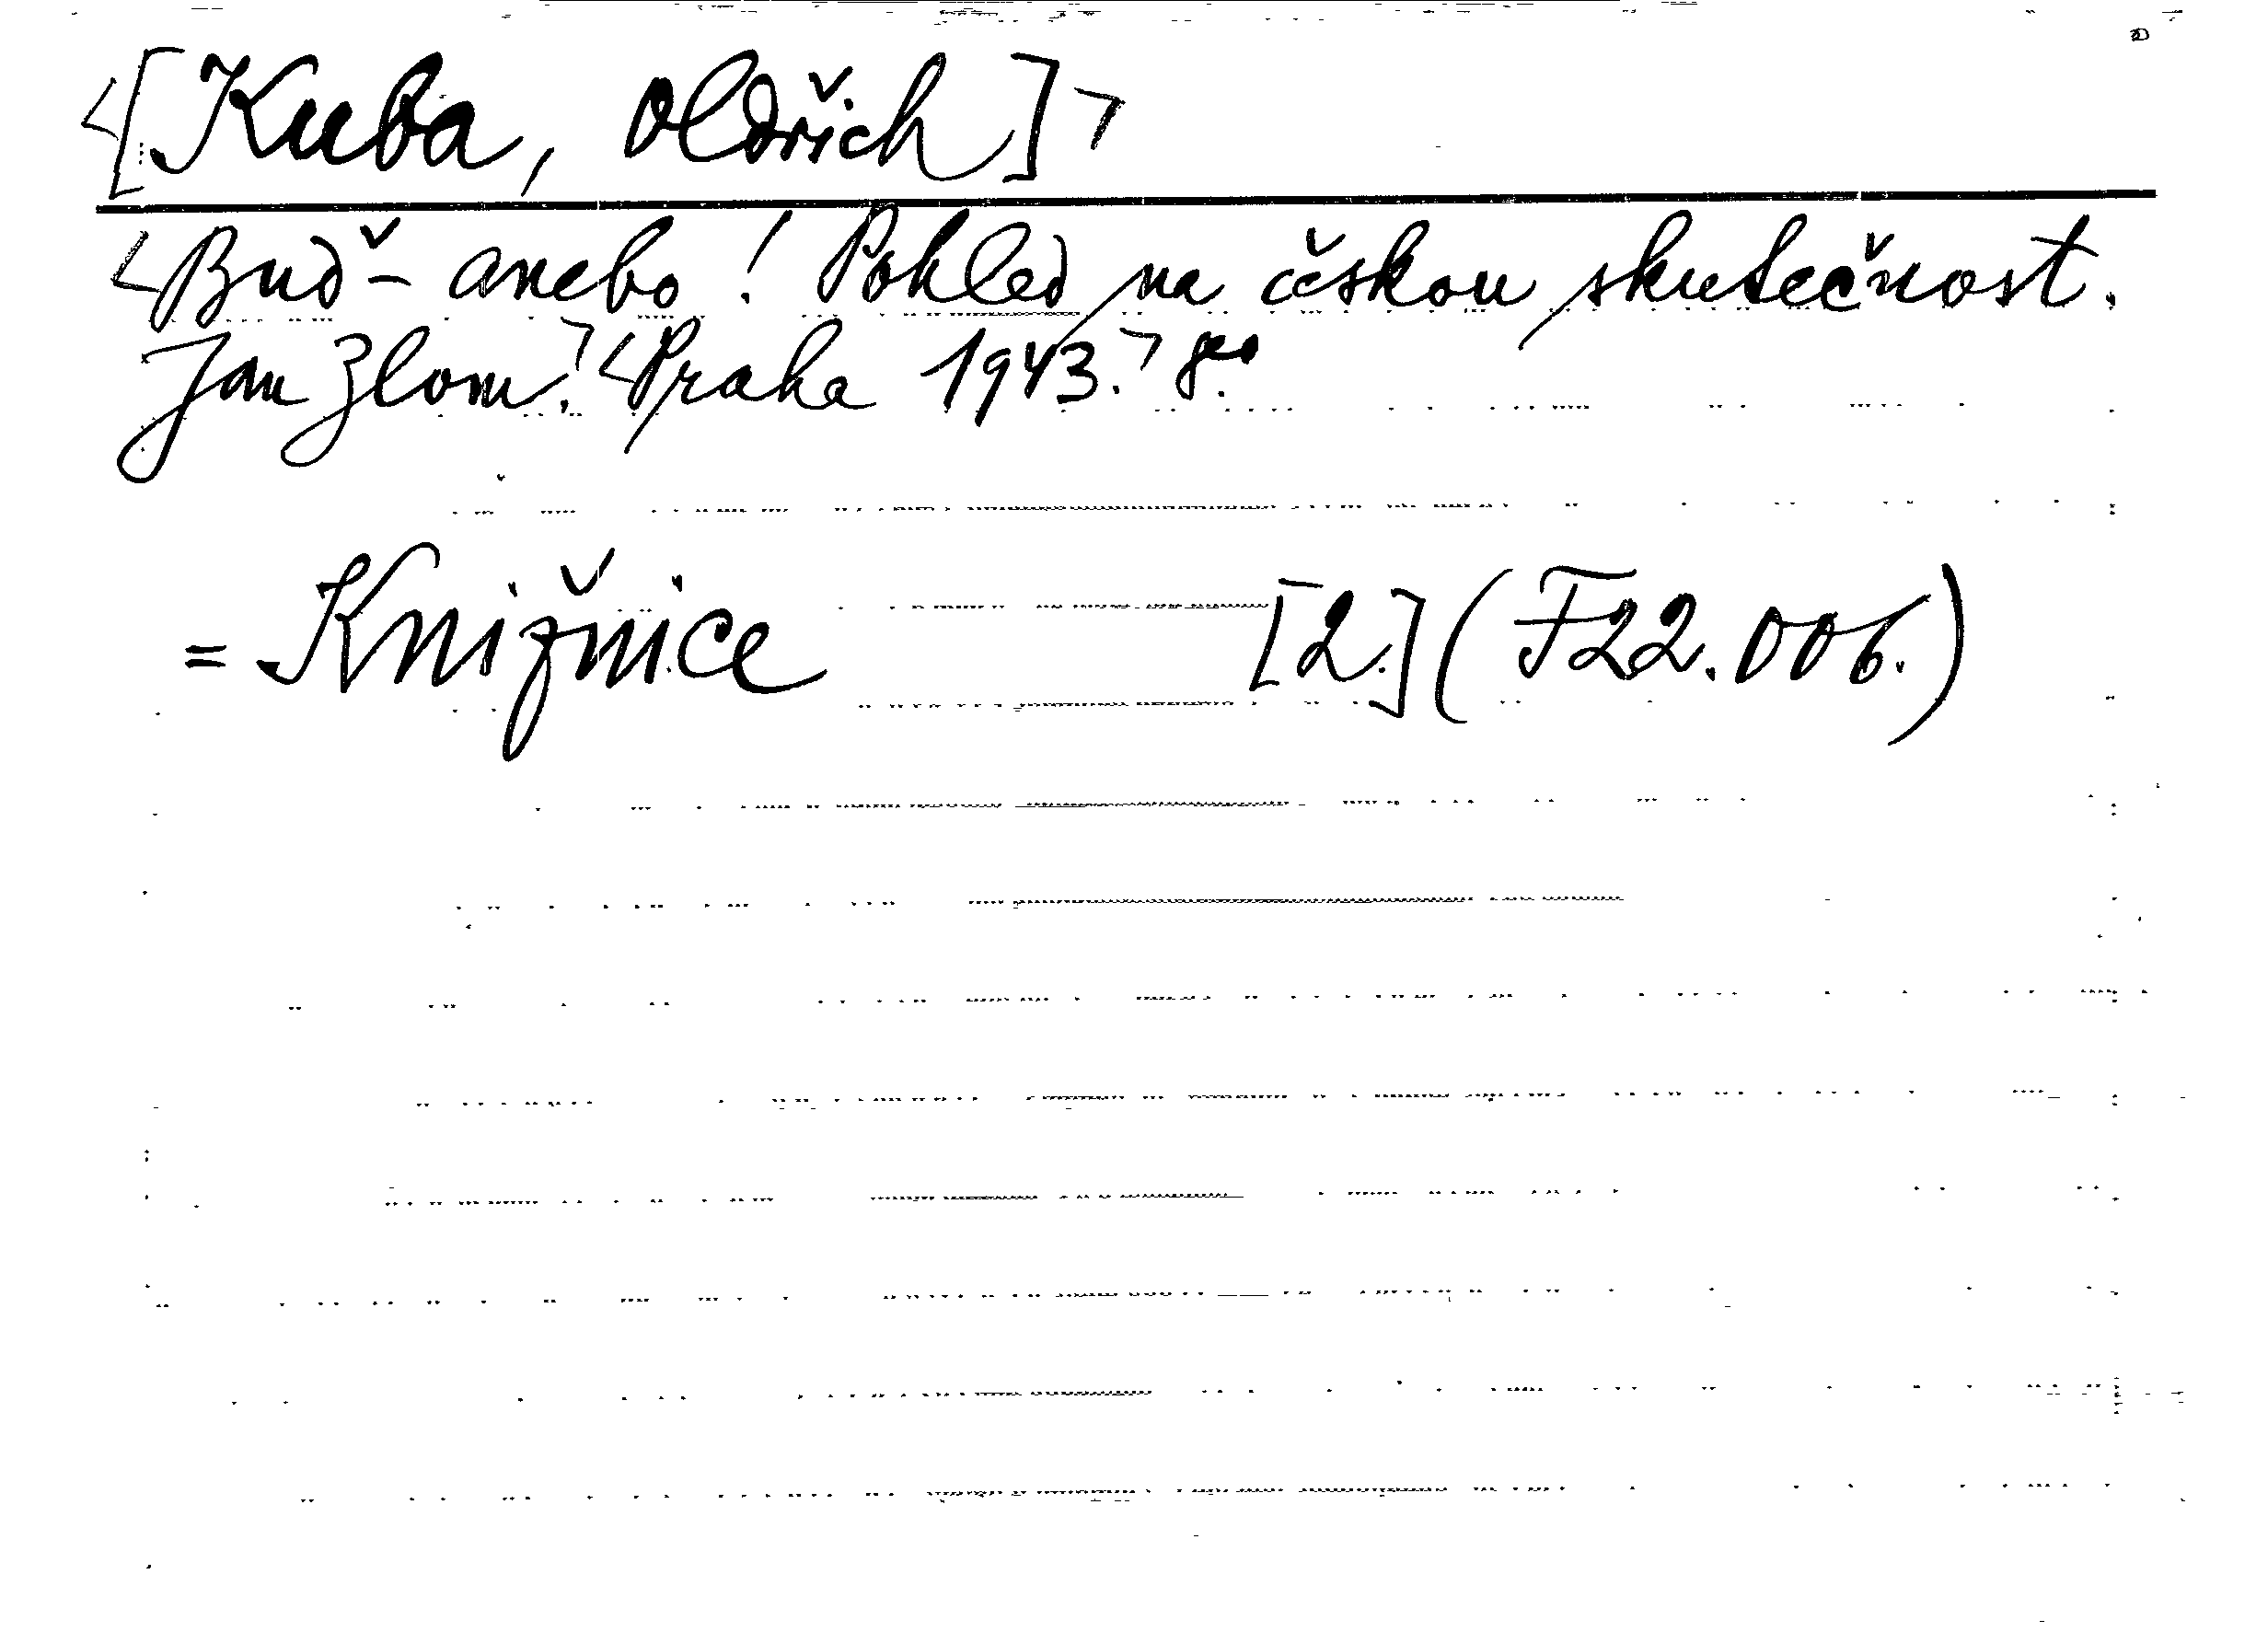 <[Kuba, Oldřich]>
<Buď – anebo! Pohled na českou skutečnost.
Jan Zlom.> <Praha 1943.> 8°.
= Knižnice [2.] (F22.006.)